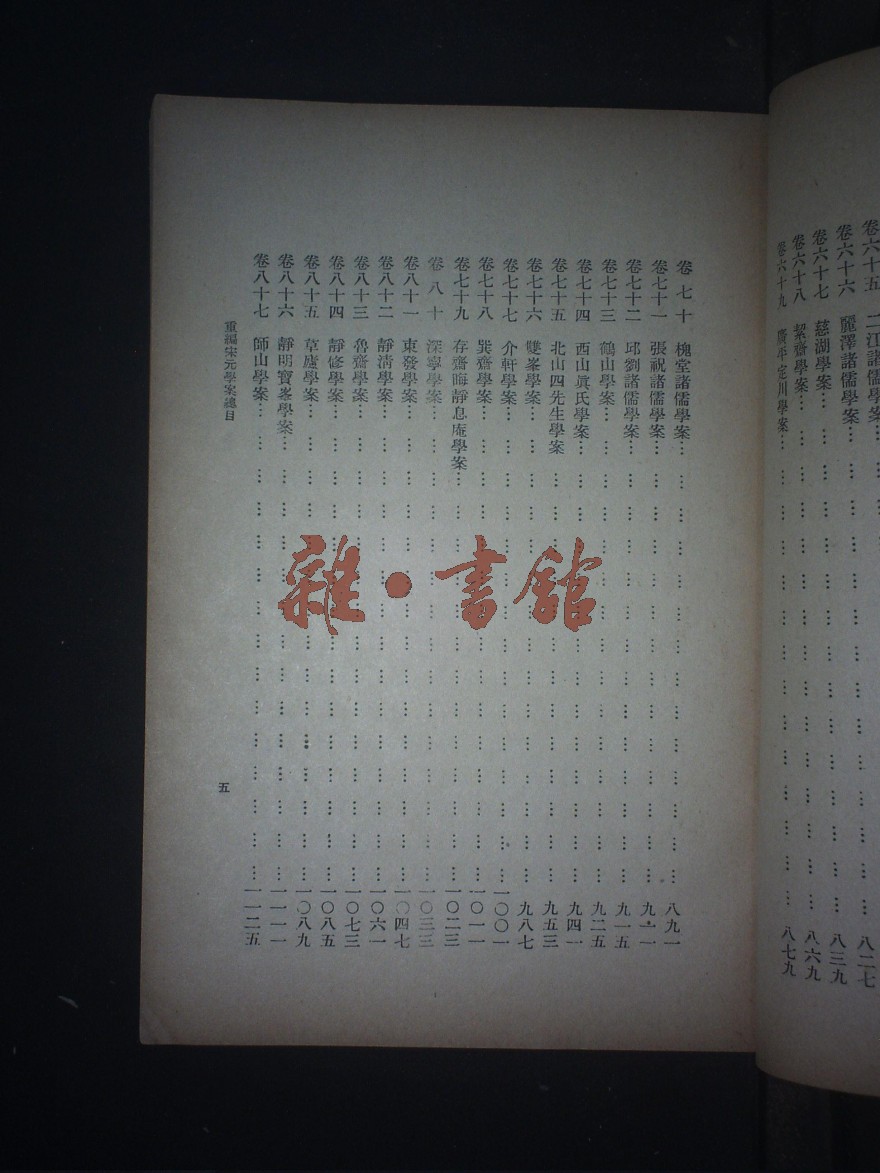 卷六十五 二江諸儒學案
卷六十六 麗澤諸儒學案……八二七
卷六十七 慈湖學案……八三九
卷六十八 絜齋學案……八六九
卷六十九 廣平定川學案……八七九
卷七十 槐堂諸儒學案……八九一
卷七十一 張祝諸儒學案……九一一
卷七十二 邱劉諸儒學案……九一五
卷七十三 鶴山學案……九二五
卷七十四 西山眞氏學案……九四一
卷七十五 北山四先生學案……九五三
卷七十六 雙峯學案……九八七
卷七十七 介軒學案……一〇〇一
卷七十八 巽齋學案……一〇一一
卷七十九 存齋晦靜息庵學案……一〇二三
卷八十 深寧學案……一〇三三
卷八十一 東發學案……一〇四七
卷八十二 靜清學案……一〇六一
卷八十三 魯齋學案……一〇七三
卷八十四 靜修學案……一〇八五
卷八十五 草廬學案……一〇八九
卷八十六 靜明寶峯學案……一一一一
卷八十七 師山學案……一一二五
重編宋元學案總目
五
雜·書館